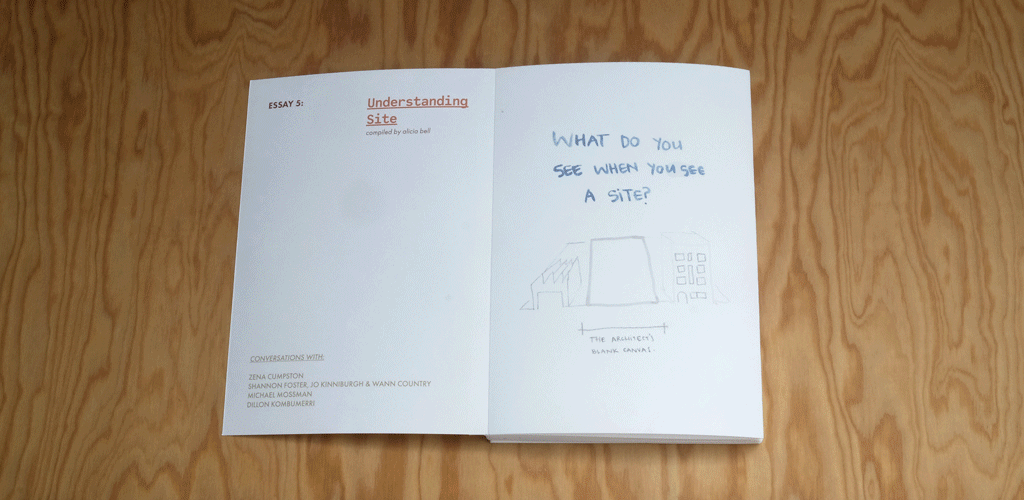 ESSAY 5:
Understanding
Site
compiled by alicia bell
CONVERSATIONS WITH:
ZENA CUMPSTON
SHANNON FOSTER, JO KINNIBURGH & WANN COUNTRY
MICHAEL MOSSMAN
DILLON KOMBUMERRI
WHAT DO YOU
SEE WHEN YOU SEE
A SITE?
THE ARCHITECT'S
BLANK CANVAS.